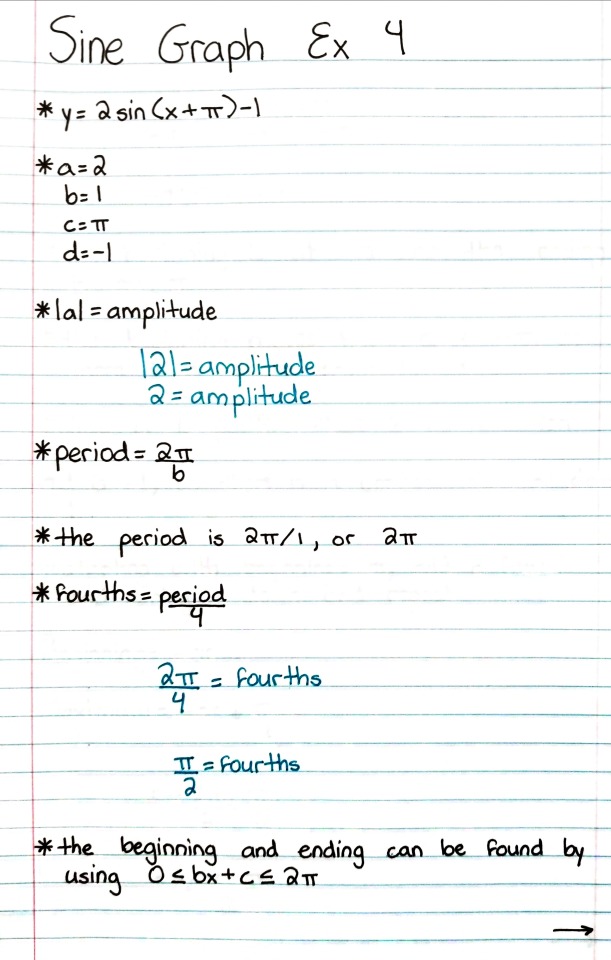 Sine Graph Ex 4
* y = 2 sin (x + π) - 1
* a = 2
b = 1
c = π
d = -1
* |a| = amplitude
|2| = amplitude
2 = amplitude
* period = 2π/b
* the period is 2π/1, or 2π
* fourths = period/4
2π/4 = fourths
π/2 = fourths
* the beginning and ending can be found by
using 0 ≤ bx + c ≤ 2π
→